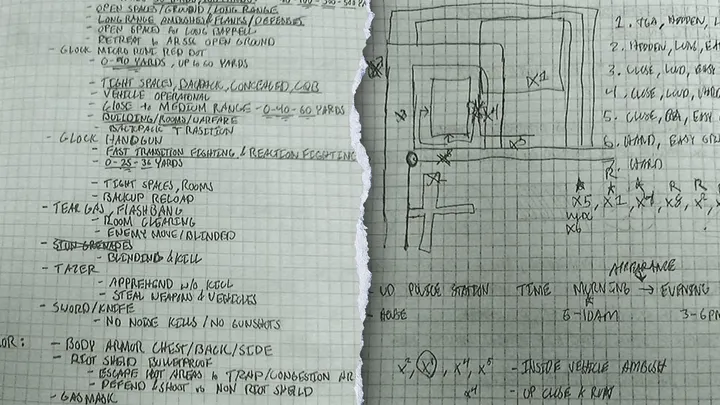 - OPEN SPACES/GROUND/LONG RANGE
- LONG RANGE AMBUSHES/FLANKS/DEFENSES
- OPEN SPACES FOR LONG BARRELL
- RETREAT to OPEN GROUND
- GLOCK MICRO RONI RED DOT
- YARDS, UP to 60 YARDS
- TIGHT SPACES, BACKPACK, CONCEALED, CQB
- VEHICLE OPERATIONAL
- CLOSE to MEDIUM RANGE - 0-40-60 YARDS
- BUILDING/ROOMS/WARFARE
- BACKPACK TRASITION
- GLOCK HANDGUN
- FAST TRANSITION FIGHTING & REACTION FIGHTING
- 0-25-36 YARDS
- TIGHT SPACES, ROOMS
- BACKUP RELOAD
- TEAR GAS, FLASHBANG
- ROOM CLEARING
- ENEMY MOVE/BLINDED
- STUN GRENADES
- BLINDING & KILL
- TAZER
- APPREHEND W/O KILL
- STEAL WEAPONS & VEHICLES
- SWORD/KNIFE
- NO NOISE KILLS/NO GUNSHOTS
OR: - BODY ARMOR CHEST/BACK/SIDE
- RIOT SHIELD BULLETPROOF
- ESCAPE HOT AREAS to TRAP/CONGESTION AR
- DEFEND & SHOOT vs NON RIOT SHIELD
- GAS MASK
X1
X5
1.
2. HIDDEN, LONG, EA
3. CLOSE, LOUD, EASE
4. CLOSE, LOUD, HARD
5. CLOSE, EASY
6. HARD, EASY
7. HARD
X5, X1, X4, X8, X2,
X6
APPEARANCE
POLICE STATION TIME MORNING → EVENING
- HOUSE 5-10AM 3-6PM
X2, X1, X4, X5 - INSIDE VEHICLE AMBUSH
X4 - UP CLOSE & RUN